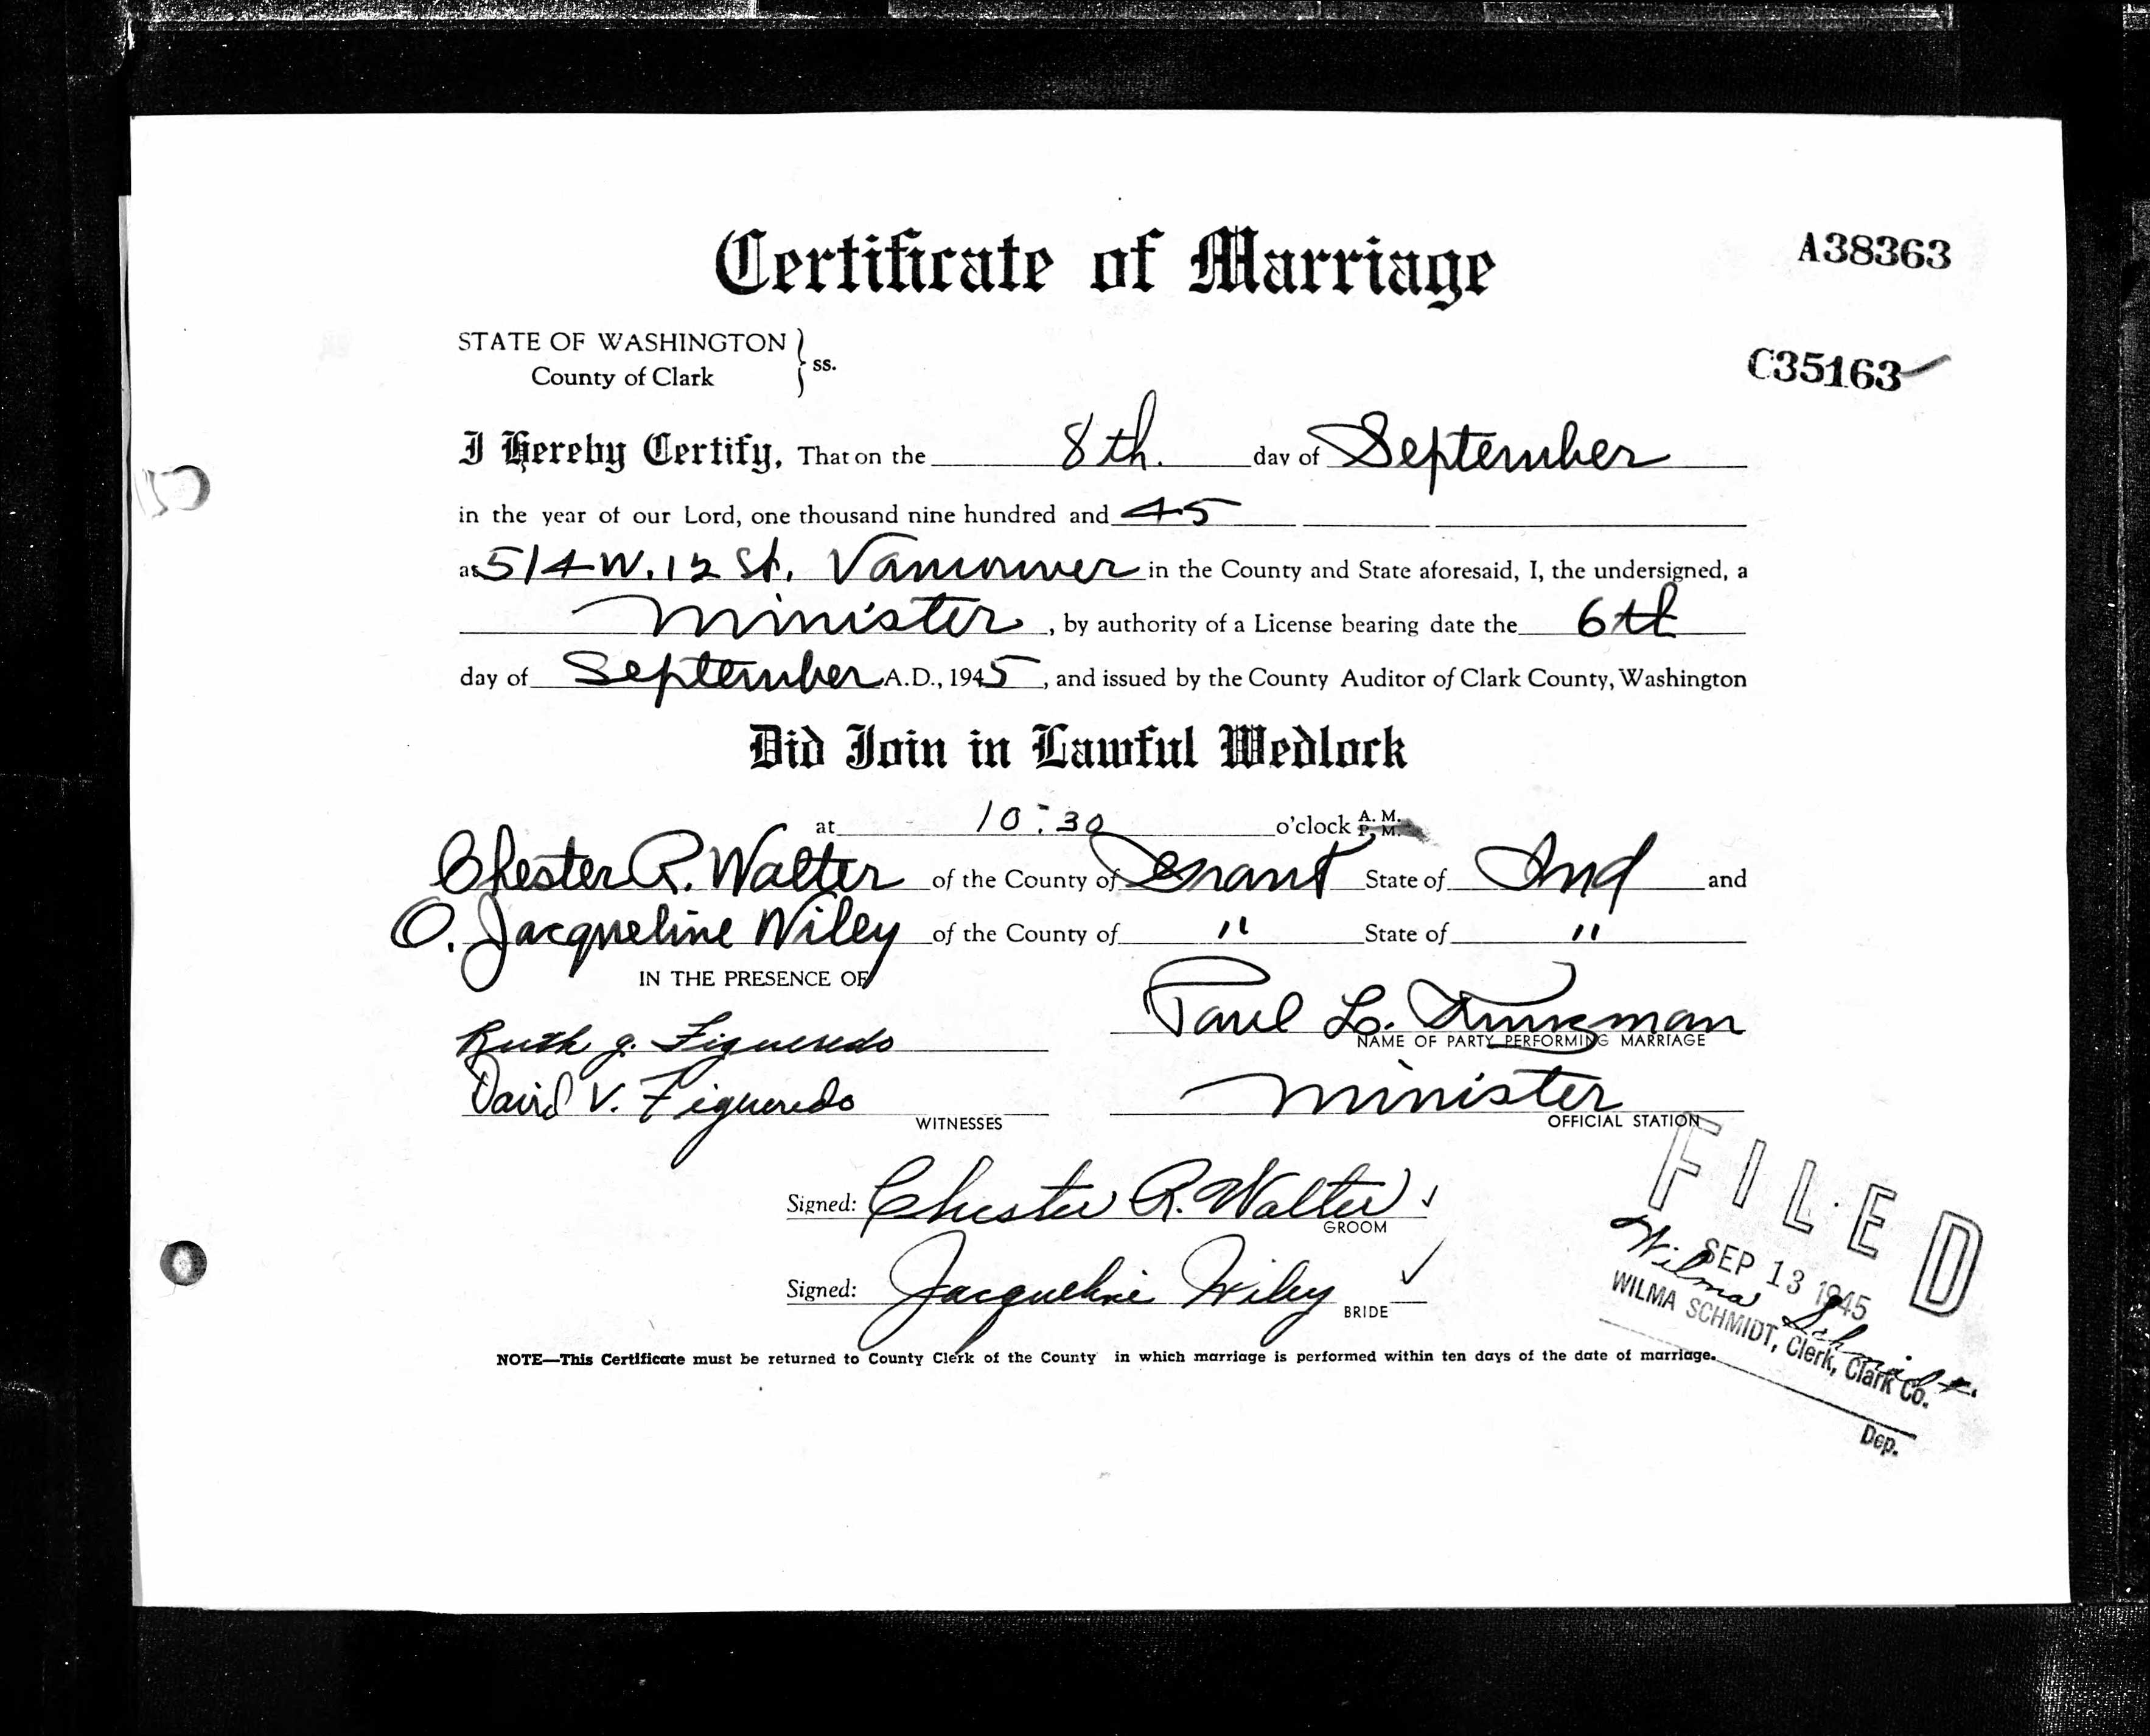 Certificate of Marriage
A38363
STATE OF WASHINGTON
County of Clark } ss.
C35163
I Hereby Certify, That on the 8th. day of September
in the year of our Lord, one thousand nine hundred and 45
at 514 W. 12 St. Vancouver in the County and State aforesaid, I, the undersigned, a
minister, by authority of a License bearing date the 6th
day of September A.D., 1945, and issued by the County Auditor of Clark County, Washington
Did Join in Lawful Wedlock
at 10:30 o'clock A. M. P. M.
Chester R. Walter of the County of Grant State of Ind and
O. Jacqueline Wiley of the County of " State of "
IN THE PRESENCE OF
Paul L.
NAME OF PARTY PERFORMING MARRIAGE
Ruth J. Figueredo
David V. Figueredo
WITNESSES
minister
OFFICIAL STATION
Signed: Chester R. Walter
GROOM
Signed: Jacqueline Wiley
BRIDE
FILED
SEP 13 1945
Wilma Schmidt
WILMA SCHMIDT, Clerk, Clark Co.
Dep.
NOTE—This Certificate must be returned to County Clerk of the County in which marriage is performed within ten days of the date of marriage.